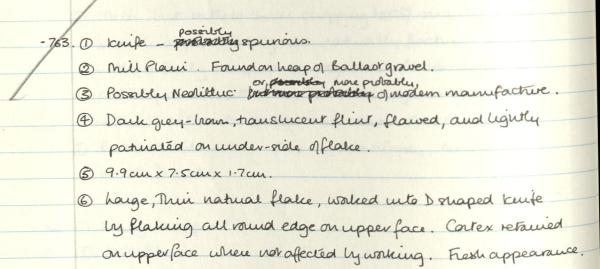 possibly
-763. ① Knife - probably spurious.
② Mill Plain. Found on heap of Ballast gravel.
or possibly more probably,
③ Possibly Neolithic but more probably of modern manufacture.
④ Dark grey-brown, translucent flint, flawed, and lightly
patinated on under-side of flake.
⑤ 9.9cm x 7.5cm x 1.7cm.
⑥ Large, Thin natural flake, worked into D shaped knife
by flaking all round edge on upper face. Cortex retained
on upper face where not affected by working. Fresh appearance.